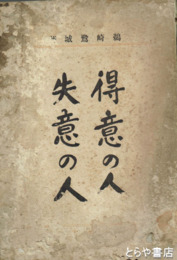 鵜崎鷺城著
得意の人
失意の人
とらや書店